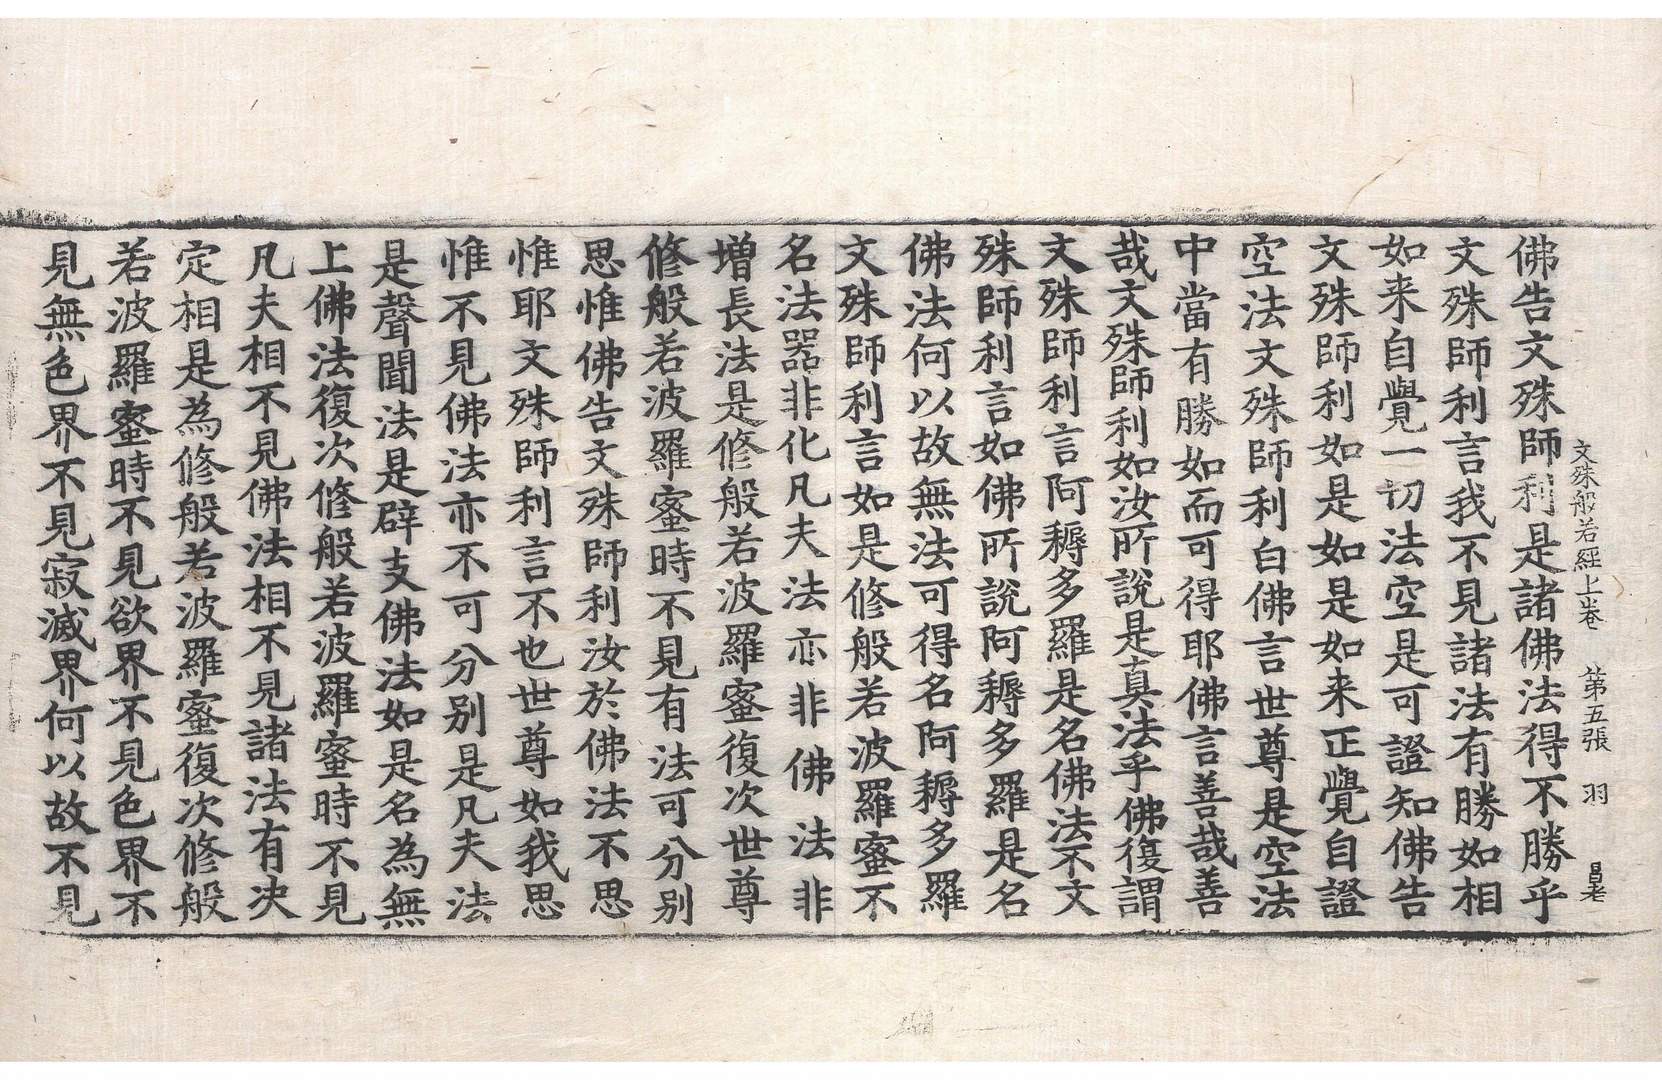 文殊般若經上卷 第五張 羽 昌老
佛告文殊師利是諸佛法得不勝乎
文殊師利言我不見諸法有勝如相
如来自覺一切法空是可證知佛告
文殊師利如是如是如来正覺自證
空法文殊師利白佛言世尊是空法
中當有勝如而可得耶佛言善哉善
哉文殊師利如汝所說是真法乎佛復謂
文殊師利言阿耨多羅是名佛法不文
殊師利言如佛所說阿耨多羅是名
佛法何以故無法可得名阿耨多羅
文殊師利言如是修般若波羅蜜不
名法器非化凡夫法亦非佛法非
增長法是修般若波羅蜜復次世尊
修般若波羅蜜時不見有法可分別
思惟佛告文殊師利汝於佛法不思
惟耶文殊師利言不也世尊如我思
惟不見佛法亦不可分別是凡夫法
是聲聞法是辟支佛法如是名為無
上佛法復次修般若波羅蜜時不見
凡夫相不見佛法相不見諸法有决
定相是為修般若波羅蜜復次修般
若波羅蜜時不見欲界不見色界不
見無色界不見寂滅界何以故不見